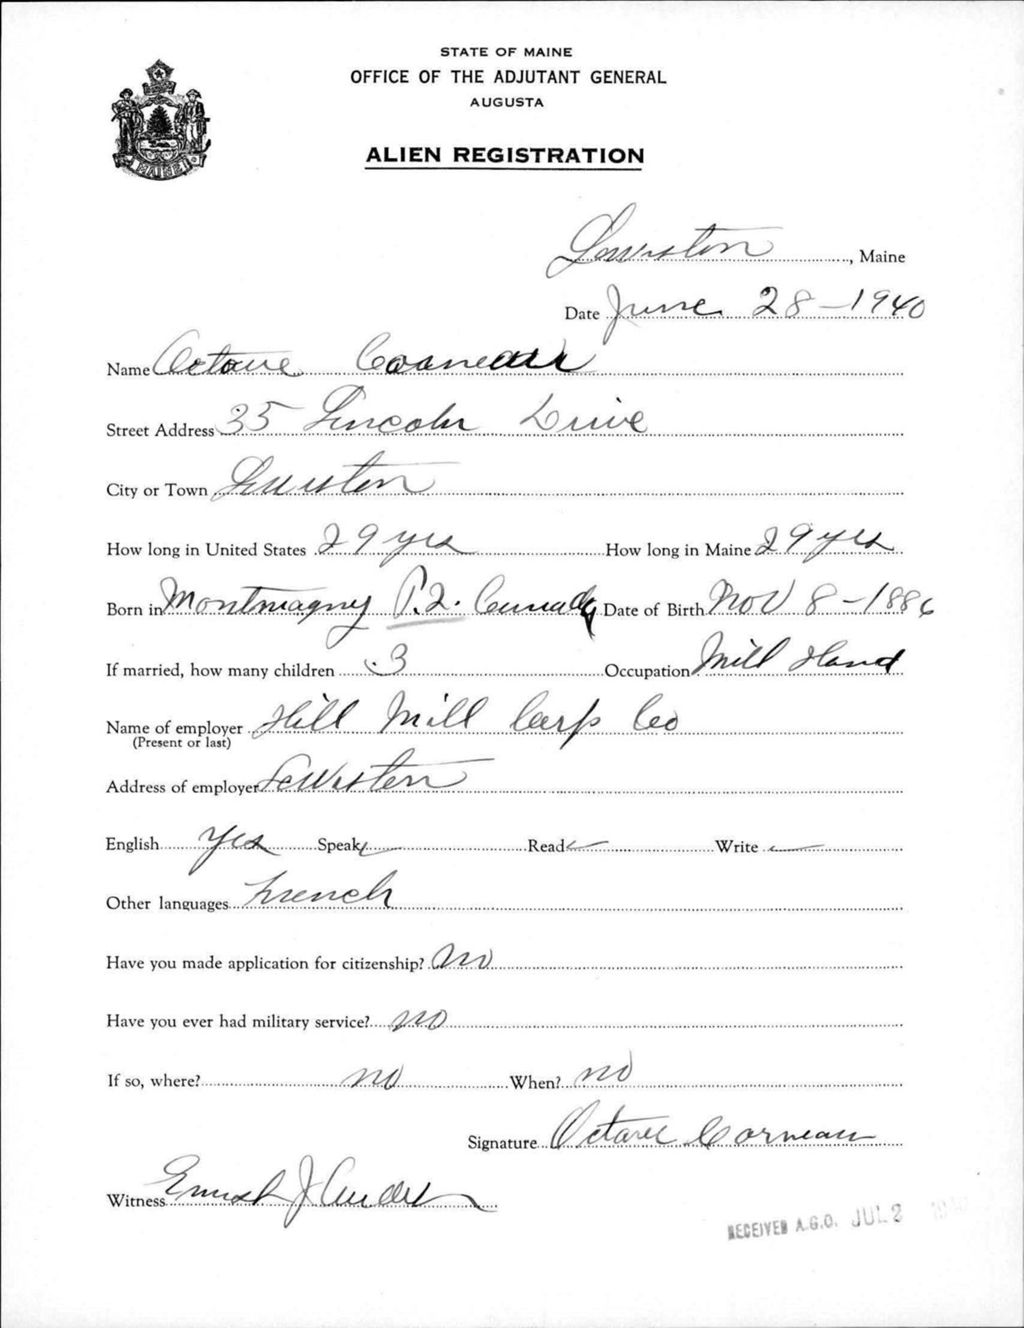 STATE OF MAINE
OFFICE OF THE ADJUTANT GENERAL
AUGUSTA
ALIEN REGISTRATION
MAINE
Lewiston, Maine
Date June 28-1940
Name Octave Corneau
Street Address 35 Lincoln Drive
City or Town Lewiston
How long in United States 29 yrs How long in Maine 29 yrs
Born in Montmagny P.Q. Canada Date of Birth Nov 8-1886
If married, how many children 3 Occupation Mill Hand
Name of employer Hill Mill Corp Co
(Present or last)
Address of employer Lewiston
English yes Speak ✓ Read ✓ Write ✓
Other languages French
Have you made application for citizenship? No
Have you ever had military service? no
If so, where? no When? no
Signature Octave Corneau
Witness J
RECEIVED A.G.O. JUL 2